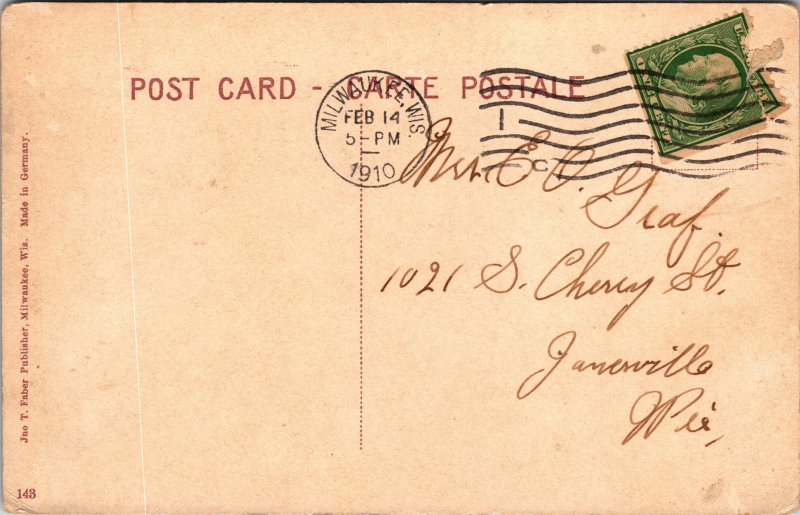 POST CARD - CARTE POSTALE
MILWAUKEE, WIS.
FEB 14
5-PM
1910
1
C
ONE CENT
Mrs. E. O. Graf.
1021 S. Cherry St.
Janesville
Wis,
Jno T. Faber Publisher, Milwaukee, Wis. Made in Germany.
143